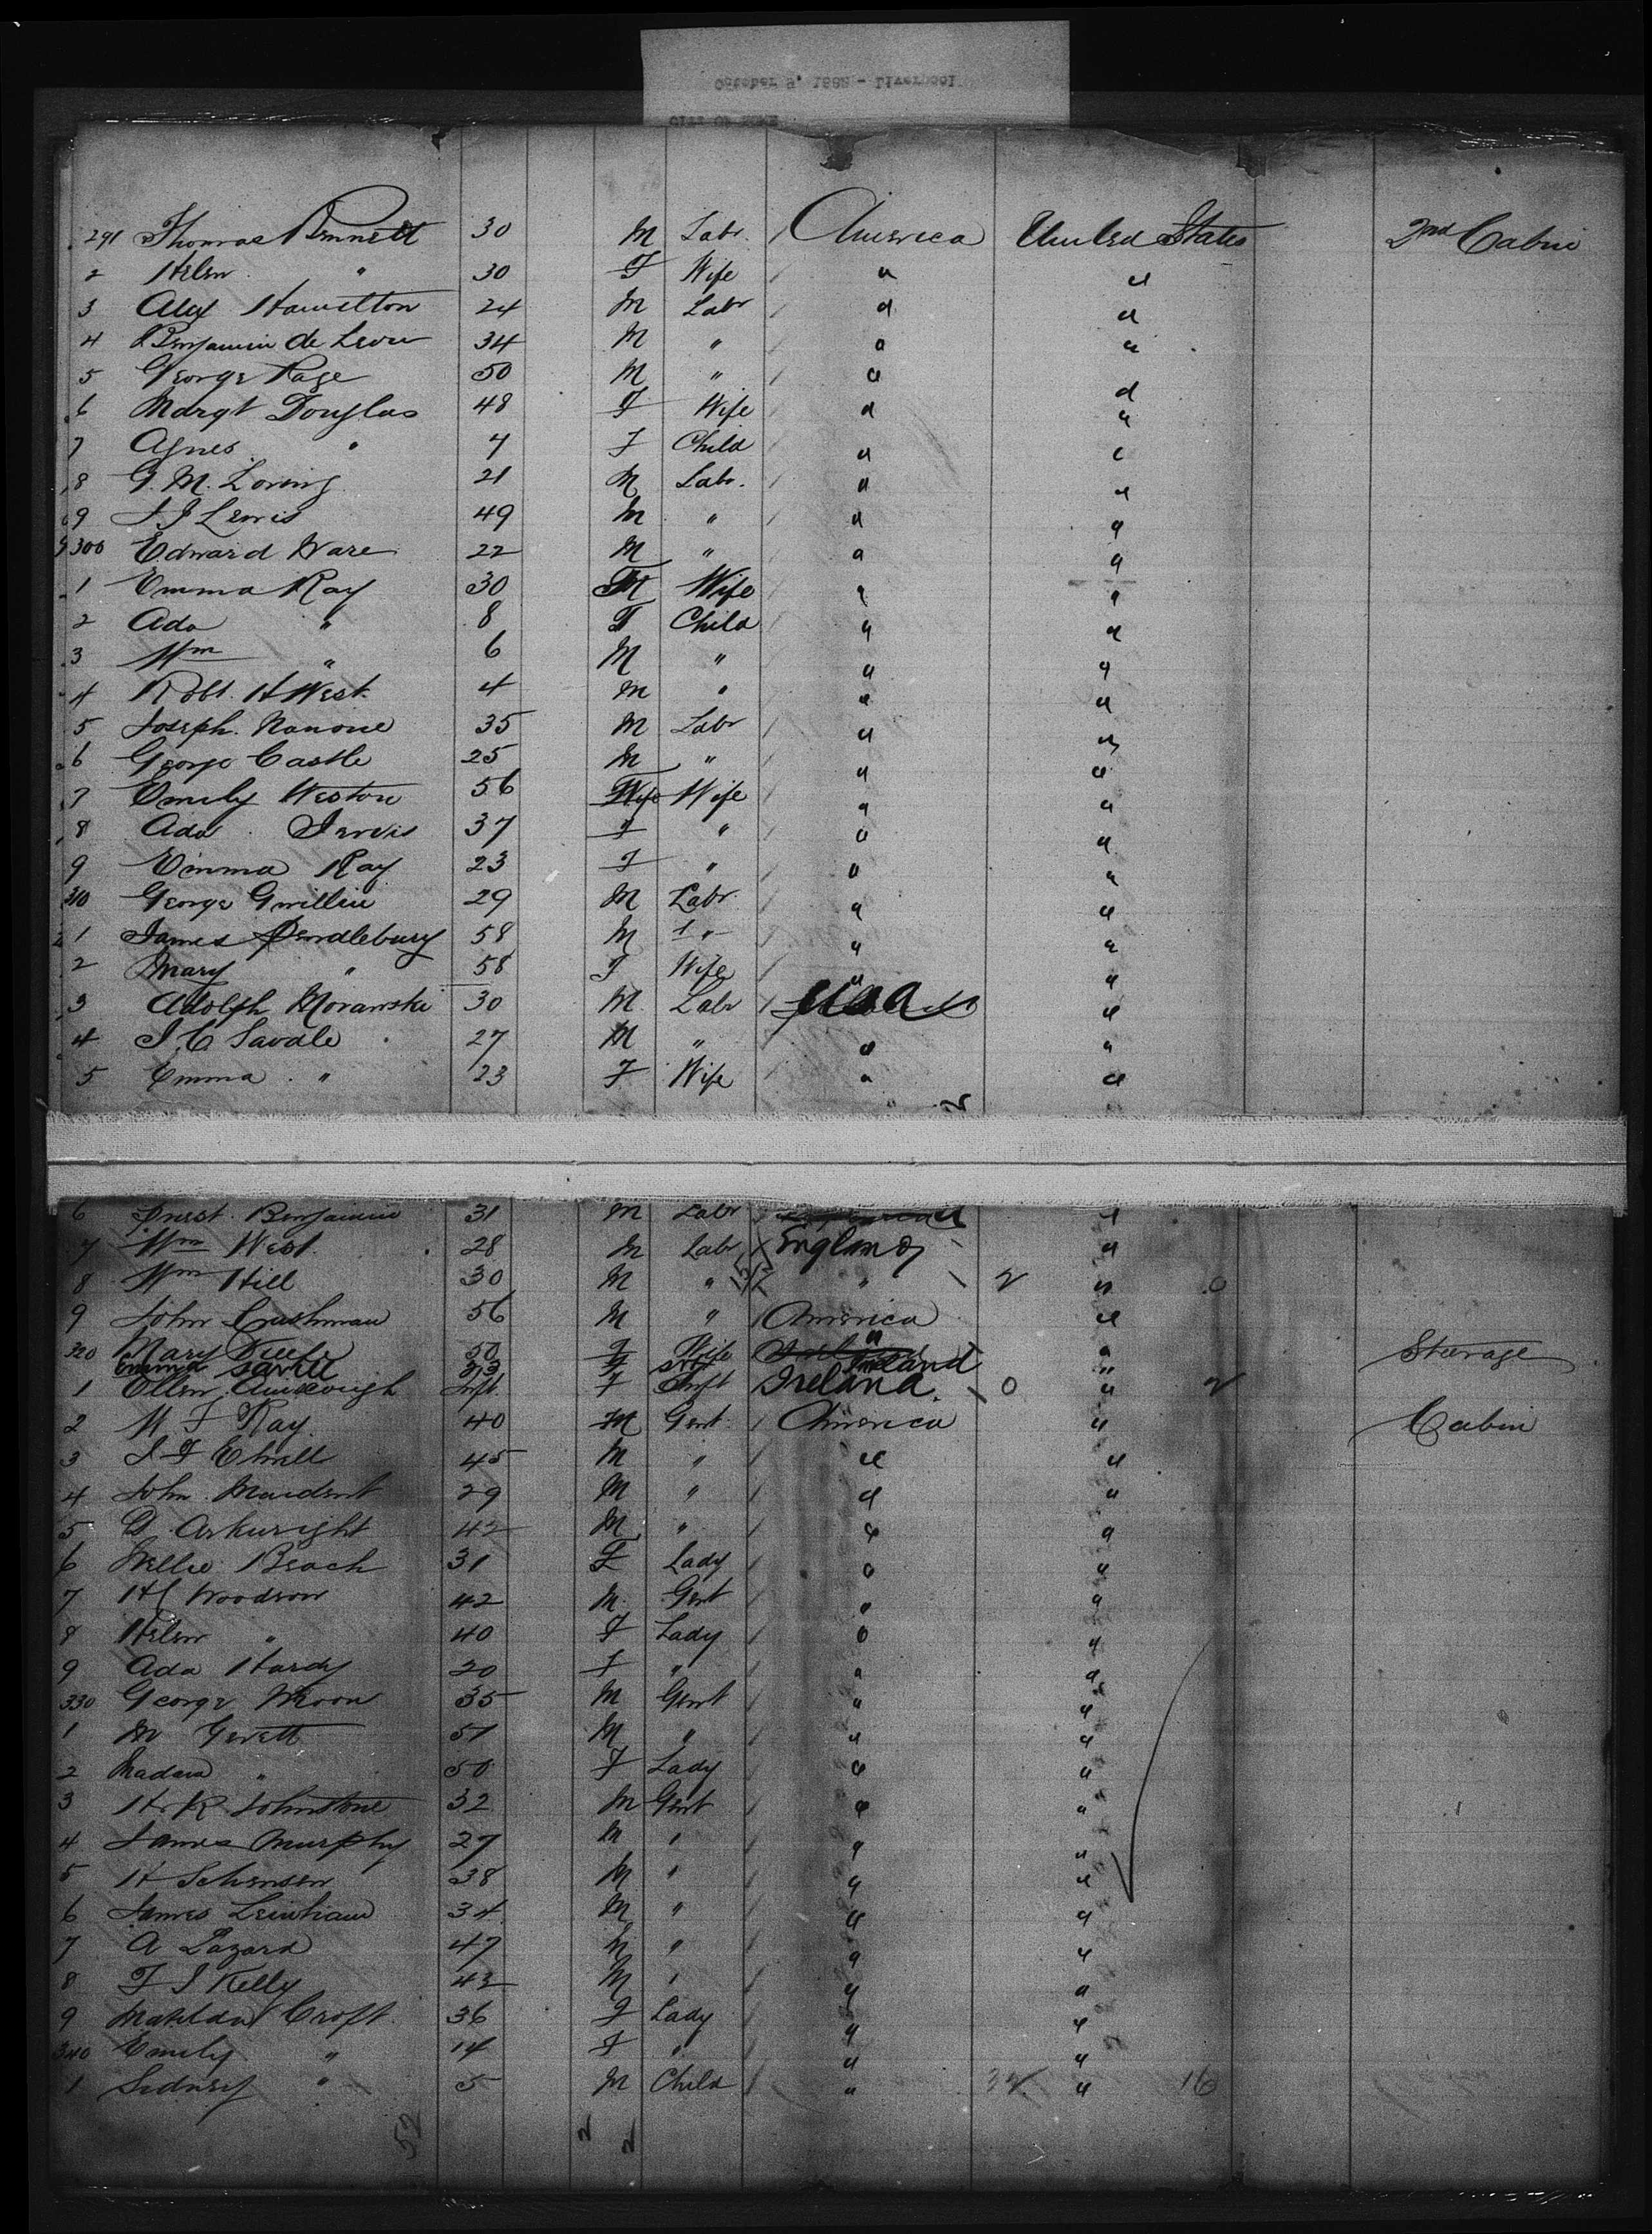 October 9, 1888 - Liverpool
CITY OF ROME
291 Thomas Bennett 30 M Labr. / America United States 2nd Cabin
2 Helen " 30 F Wife / " "
3 Alex Hamilton 24 M Labr / " "
4 Benjamin de Leon 34 M " / " "
5 George Page 50 M " / " "
6 Margt Douglas 48 F Wife / " "
7 Agnes " 4 F Child " "
8 G. M. Loring 21 M Labr. / " "
9 J J Lewis 49 M " / " "
300 Edward Ware 22 M " / " "
1 Emma Ray 30 F Wife / " "
2 Ada " 8 F Child / " "
3 Wm " 6 M " " "
4 Robt. H West 4 M " " "
5 Joseph 35 M Labr / " "
6 George Castle 25 M " / " "
7 Emily Weston 56 Wife Wife / " "
8 Ada Jervis 37 F " / " "
9 Emma Ray 23 F " / " "
310 George Gwillim 29 M Labr. / " "
1 James Pendlebury 58 M " / " "
2 Mary " 58 F Wife / " "
3 Adolph Moranski 30 M Labr / "
4 J. C Savale 27 M " / " "
5 Emma " 23 F Wife / " "
6 Benjamin 31 M Labr / "
7 Wm West 28 M Labr / England "
8 Wm Hill 30 M " " 2 " 0
9 John Cushman 56 M " / America "
320 Mary 50 F Wife " " Steerage
Emma Savill 33 F Ireland "
1 Ellen Inft. F Inft Ireland. 0 " 2
2 W F Ray 40 M Gent. / America " Cabin
3 J F 45 M " / " "
4 John 29 M " / " "
5 D. Arkwright 42 M " / " "
6 Nellie Beach 31 F Lady / " "
7 H C Woodson 42 M Gent / " "
8 Helen " 40 F Lady / " "
9 Ada Hardy 20 F " / " "
330 George Moon 35 M Gent / " "
1 M Gerett 51 M " / " "
2 Madam " 50 F Lady / " "
3 H. R Johnstone 32 M Gent / " "
4 James Murphy 27 M " / " "
5 H 38 M " / " "
6 James 34 M " / " "
7 A Lazard 47 M " / " "
8 F J Kelly 42 M " / " "
9 Matilda Croft. 36 F Lady / " "
340 Emily " 14 F " / " "
1 Sidney " 5 M Child / " 32 " 16
52 2 2